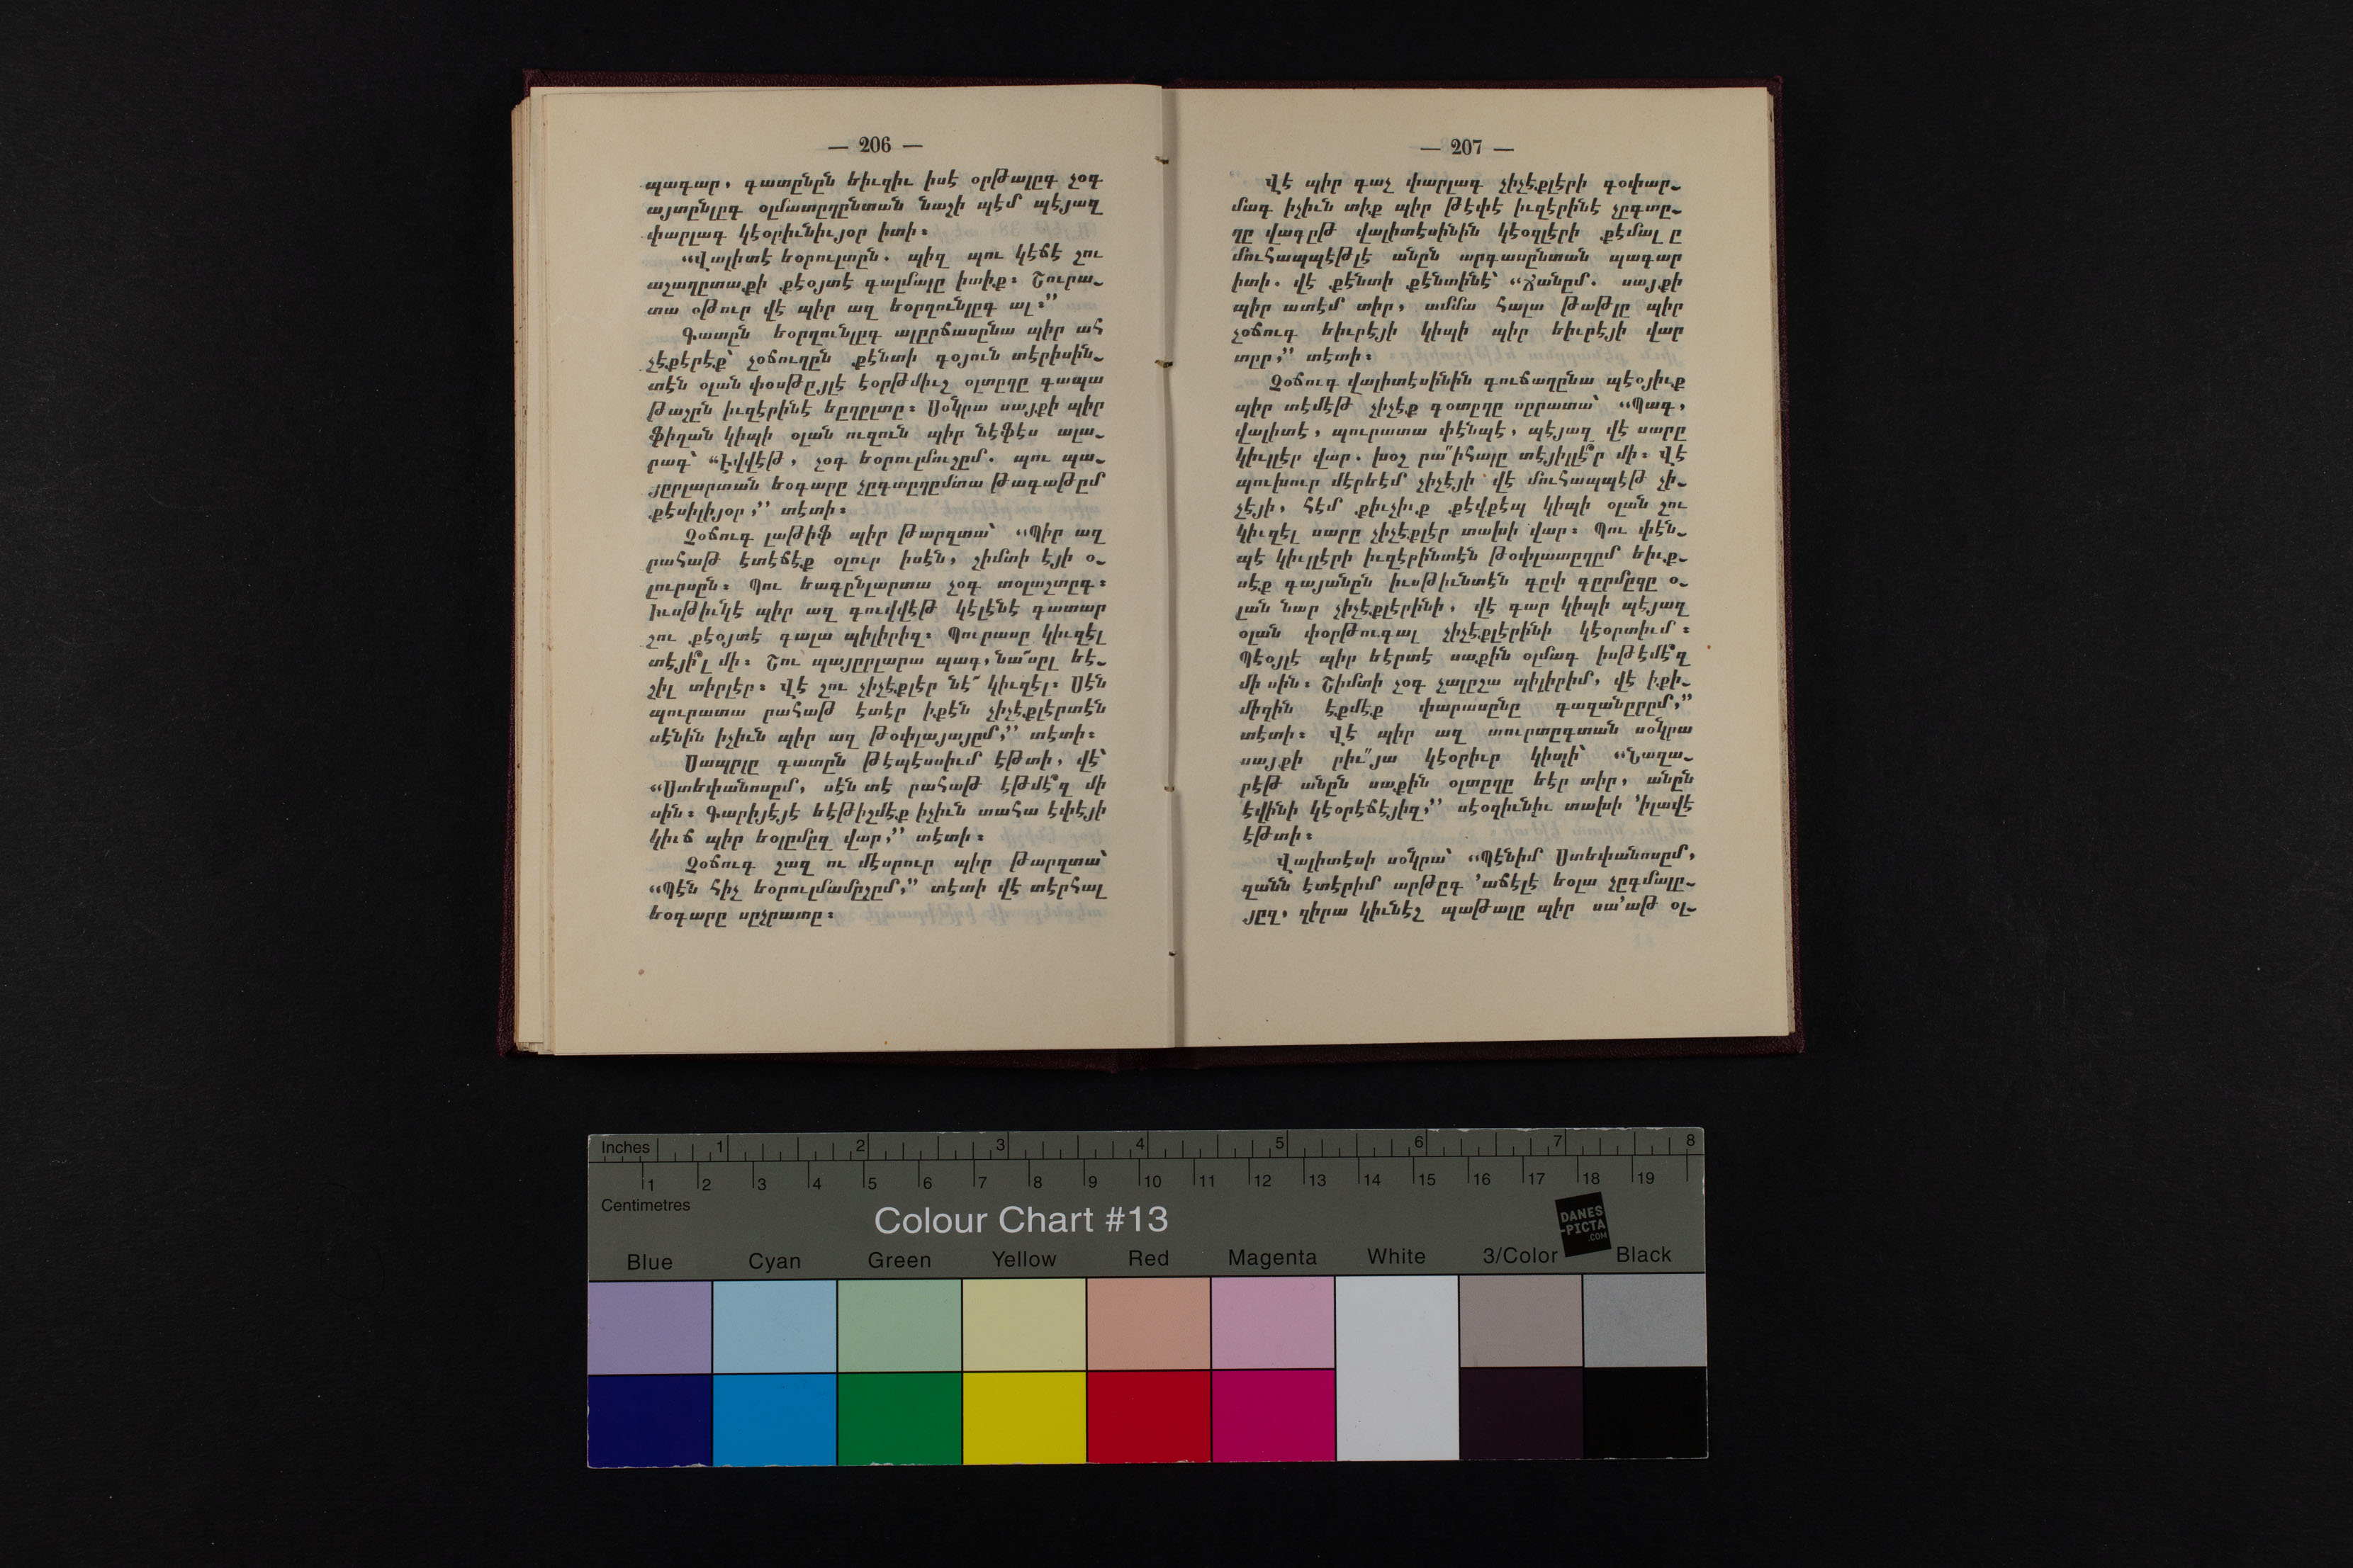 — 206 —
պագար, գատընըն եիւզիւ իսէ օրթալըգ չօգ
այտընլըգ օլմատըղընտան նաչի պէմ պէյազ
փարլագ կէօրիւնիւյօր իտի։
“Վալիտէ եօրուլտըն. պիզ պու կէճէ շու
աչաղըտաքի քէօյտէ գալմալը իտիք։ Շուրա֊
տա օթուր վէ պիր ազ եօրղունլըգ ալ։”
Գատըն եօրղունլըգ ալըրճասընա պիր ահ
չէքէրէք՝ չօճուղըն քէնտի գօյուն տէրիսին֊
տէն օլան փօսթըյլէ էօրթմիւշ օլտըղը գապա
թաշըն իւզէրինէ եըղըլտը։ Սօնկրա սայքի պիր
ֆիղան կիպի օլան ուզուն պիր նէֆէս ալա֊
րագ՝ “Էվվէթ, չօգ եօրուլմուշըմ. պու պա֊
յըրլարտան եօգարը չըգտըղըմտա թագաթըմ
քէսիլիյօր,” տէտի։
Չօճուգ լաթիֆ պիր թարզտա՝ “Պիր ազ
րահաթ էտէճէք օլուր իսէն, շիմտի էյի օ֊
լուրսըն։ Պու եագընլարտա չօգ տօլաշտըգ։
Իւսթիւնկէ պիր ազ գուվվէթ կէլէնէ գատար
շու քէօյտէ գալա պիլիրիզ։ Պուրասը կիւզէլ
տէյի՞լ մի։ Շու պայըրլարա պագ, նա՜սըլ եէ֊
շիլ տիրլէր։ Վէ շու չիչէքլէր նէ՜ կիւզէլ։ Սէն
պուրատա րահաթ էտէր իքէն չիչէքլէրտէն
սէնին իչիւն պիր ազ թօփլայայըմ,” տէտի։
Սապըլը գատըն թէպէսսիւմ էթտի, վէ՝
“Ստեփանոսըմ, սէն տէ րահաթ էթմէ՞զ մի
սին։ Գարիյէյէ եէթիշմէք իչիւն տահա էփէյի
կիւճ պիր եօլըմըզ վար,” տէտի։
Չօճուգ շազ ու մէսրուր պիր թարզտա՝
“Պէն հիչ եօրուլմամըշըմ,” տէտի վէ տէրհալ
եօգարը սըչրատը։
— 207 —
Վէ պիր գաչ փարլագ չիչէքլէրի գօփար֊
մագ իչիւն տիք պիր թէփէ իւզէրինէ չըգտը֊
ղը վագըթ վալիտէսինին կէօզլէրի քէմալ ը
մուհապպէթլէ անըն արգասընտան պագար
իտի. վէ քէնտի քէնտինէ՝ “Ճանըմ. սայքի
պիր ատէմ տիր, ամմա հալա թաթլը պիր
չօճուգ եիւրէյի կիպի պիր եիւրէյի վար
տըր,” տէտի։
Չօճուգ վալիտէսինին գուճաղընա պէօյիւք
պիր տէմէթ չիչէք գօտըղը սըրատա՝ “Պագ,
վալիտէ, պուրատա փէնպէ, պէյազ վէ սարը
կիւլլէր վար. խօշ րա՛՛իհալը տէյիլլէ՞ր մի։ Վէ
պուխուր մէրեէմ չիչէյի վէ մուհապպէթ չի֊
չէյի, հէմ քիւչիւք քէվքէպ կիպի օլան շու
կիւզէլ սարը չիչէքլէր տախի վար։ Պու փէն֊
պէ կիւլլէրի իւզէրինտէն թօփլատըղըմ եիւք֊
սէք գայանըն իւսթիւնտէն գըփ գըրմըզը օ֊
լան նար չիչէքլէրինի, վէ գար կիպի պէյազ
օլան փօրթուգալ չիչէքլէրինի կէօրտիւմ։
Պէօյլէ պիր եէրտէ սաքին օլմագ իսթէմէ՞զ
մի սին։ Շիմտի չօգ չալըշա պիլիրիմ, վէ իքի֊
միզին էքմէք փարասընը գազանըրըմ,”
տէտի։ Վէ պիր ազ տուրտըգտան սօնկրա
սայքի րիւ՛՛յա կէօրիւր կիպի՝ “Նաղա֊
րէթ անըն սաքին օլտըղը եէր տիր, անըն
էվինի կէօրէճէյիզ,” սէօզիւնիւ տախի ՚իլավէ
էթտի։
Վալիտէսի սօնկրա՝ “Պէնիմ Ստեփանոսըմ,
զանն էտէրիմ արթըգ ՚աճէլէ եօլա չըգմալը֊
յըզ, զիրա կիւնէշ պաթալը պիր սա՚աթ օլ֊
Inches 1 2 3 4 5 6 7 8
1 2 3 4 5 6 7 8 9 10 11 12 13 14 15 16 17 18 19
Centimetres
Colour Chart #13
DANES
-PICTA
.COM
Blue Cyan Green Yellow Red Magenta White 3/Color Black